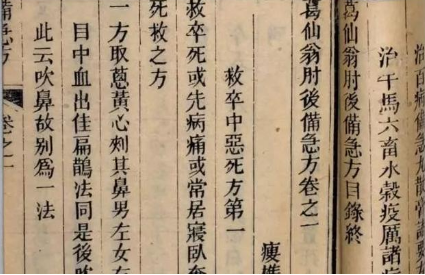 治百病備急丸散膏諸要方
治牛馬六畜水穀疫厲諸病
葛仙翁肘後備急方目錄終
葛仙翁肘後備急方卷之一
救卒中惡死方第一
救卒死或先病痛或常居寢臥奄
死救之方
一方取葱黃心刺其鼻男左女右
目中血出佳扁鵲法同是後
此云吹鼻故别爲一法
備急方
卷之一